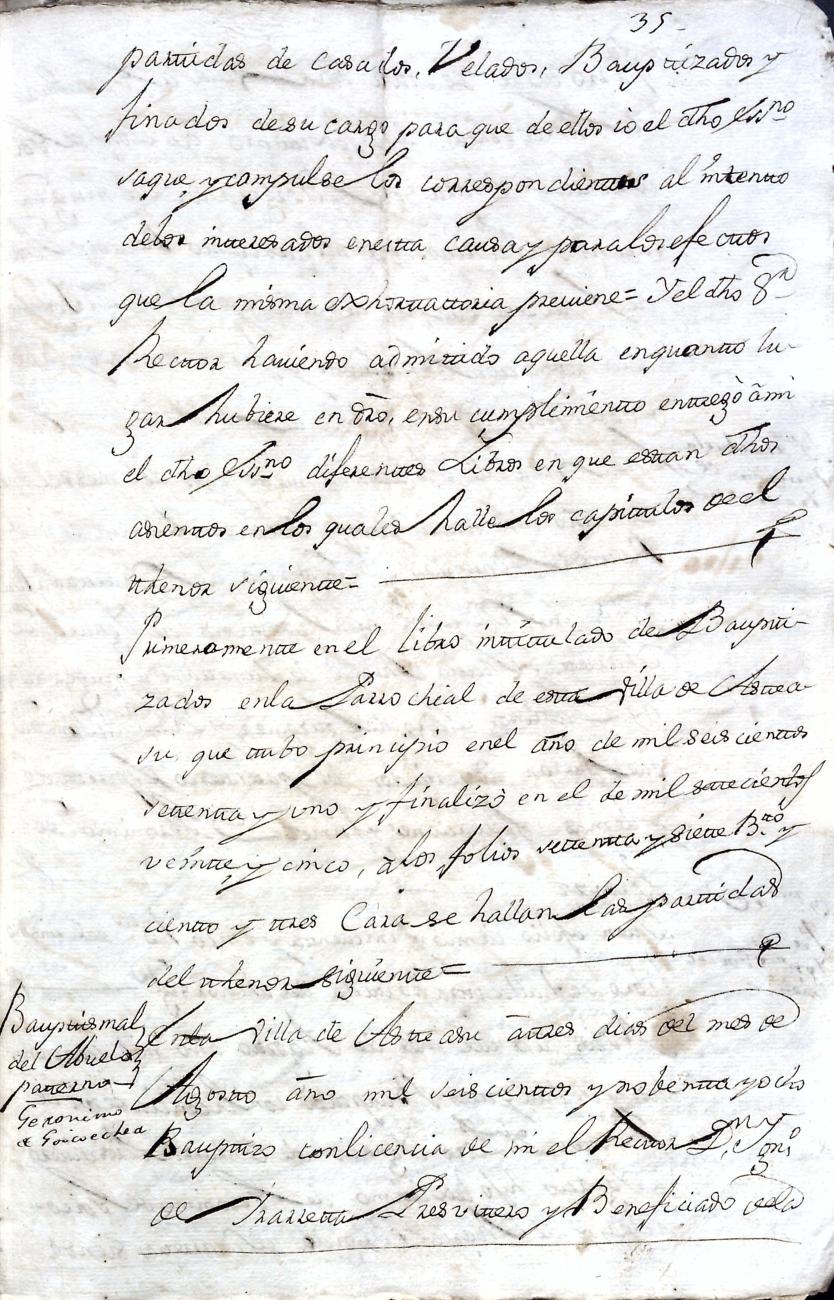 35
partidas de casados, Velados, Bauptizados y
finados de su cargo para que de ellos io el dho Essno
saque, y compulse los correspondienttes al inttentto
delos intteresados en estta causa y para los efecttos
que la misma exhorttattoria previene= Y el dho Sr
Recttor haviendo admittido aquella en quantto lu-
gar hubiere en dro, en su cumplimientto enttregò â mi
el dho Essno diferenttes Libros en que esttan dhos
asienttos en los quales halle los capittulos de el
tthenor siguientte=
Primeramentte en el libro inttittulado de Baupti-
zados en la Parrochial de estta Villa de Asttea-
su, que ttubo principio en el año de mil seis cienttos
settentta y uno y finalizò en el de mil settecienttos
veintte y cinco, a los folios settentta y siette Btto y
cientto y ttres Cara se hallan las parttidas
del tthenor siguientte=
Bauptismal
del Abuelo
patterno
Geronimo
de Goicoechea
En la Villa de Astteasu â ttres dias del mes de
Agostto año mil seis cienttos y nobentta y ocho
Bauptizo con licencia de mi el Recttor Dn Ygnº
de Ybarretta Presvittero y Beneficiado dela